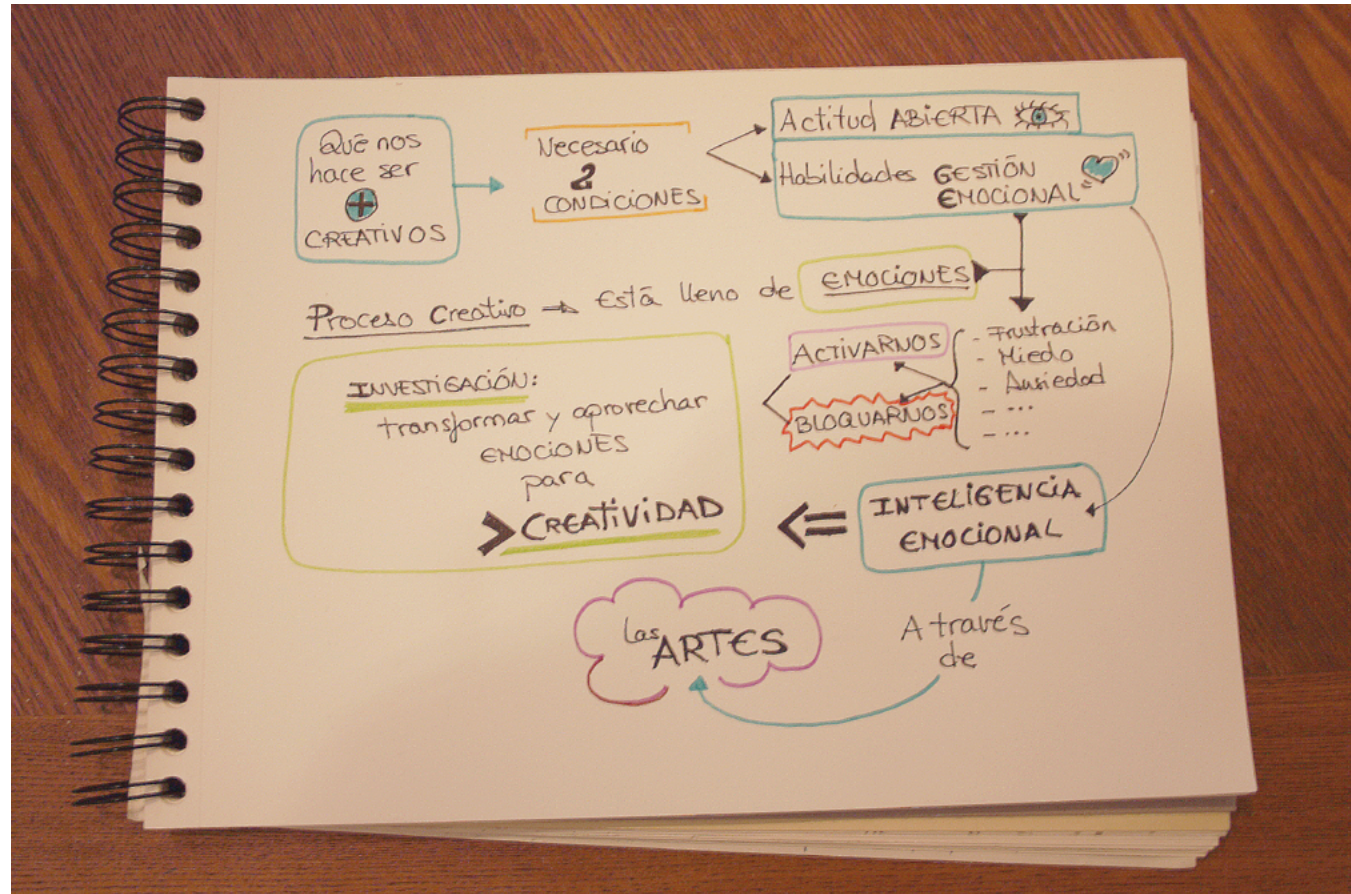 Qué nos
hace ser
+
CREATIVOS
Necesario
2
CONDICIONES
Actitud ABIERTA
Habilidades GESTIÓN
EMOCIONAL
Proceso Creativo → Está lleno de EMOCIONES
ACTIVARNOS
BLOQUARNOS
- Frustración
- Miedo
- Ansiedad
- ...
- ...
INVESTIGACIÓN:
transformar y aprovechar
EMOCIONES
para
> CREATIVIDAD
<=
INTELIGENCIA
EMOCIONAL
A través
de
Las ARTES